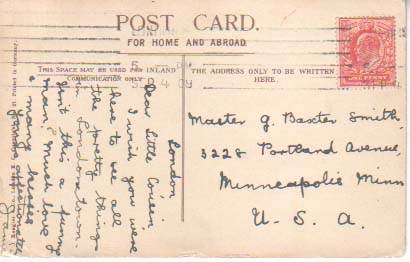 POST CARD.
FOR HOME AND ABROAD.
THIS SPACE MAY BE USED FOR INLAND
COMMUNICATION ONLY.
THE ADDRESS ONLY TO BE WRITTEN
HERE.
ONE PENNY
London
Dear Little Cousin
I wish you were
here to see all
the pretty things
in London town.
Isn't this a funny
man & much love &
many kisses
Master G. Baxter Smith,
3228 Portland Avenue,
Minneapolis Minn
U. S. A.